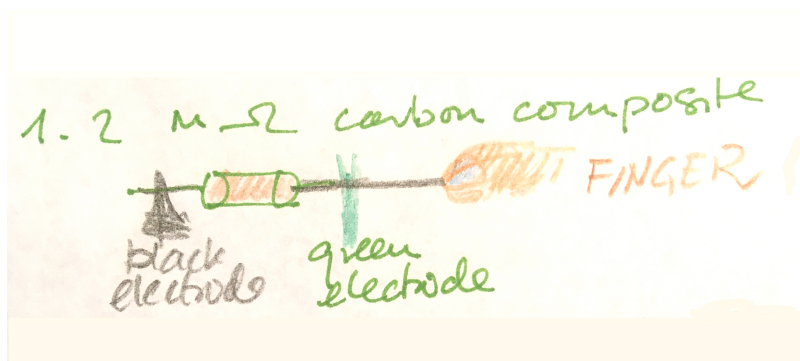 1.2 MΩ carbon composite
FINGER
black
electrode
green
electrode